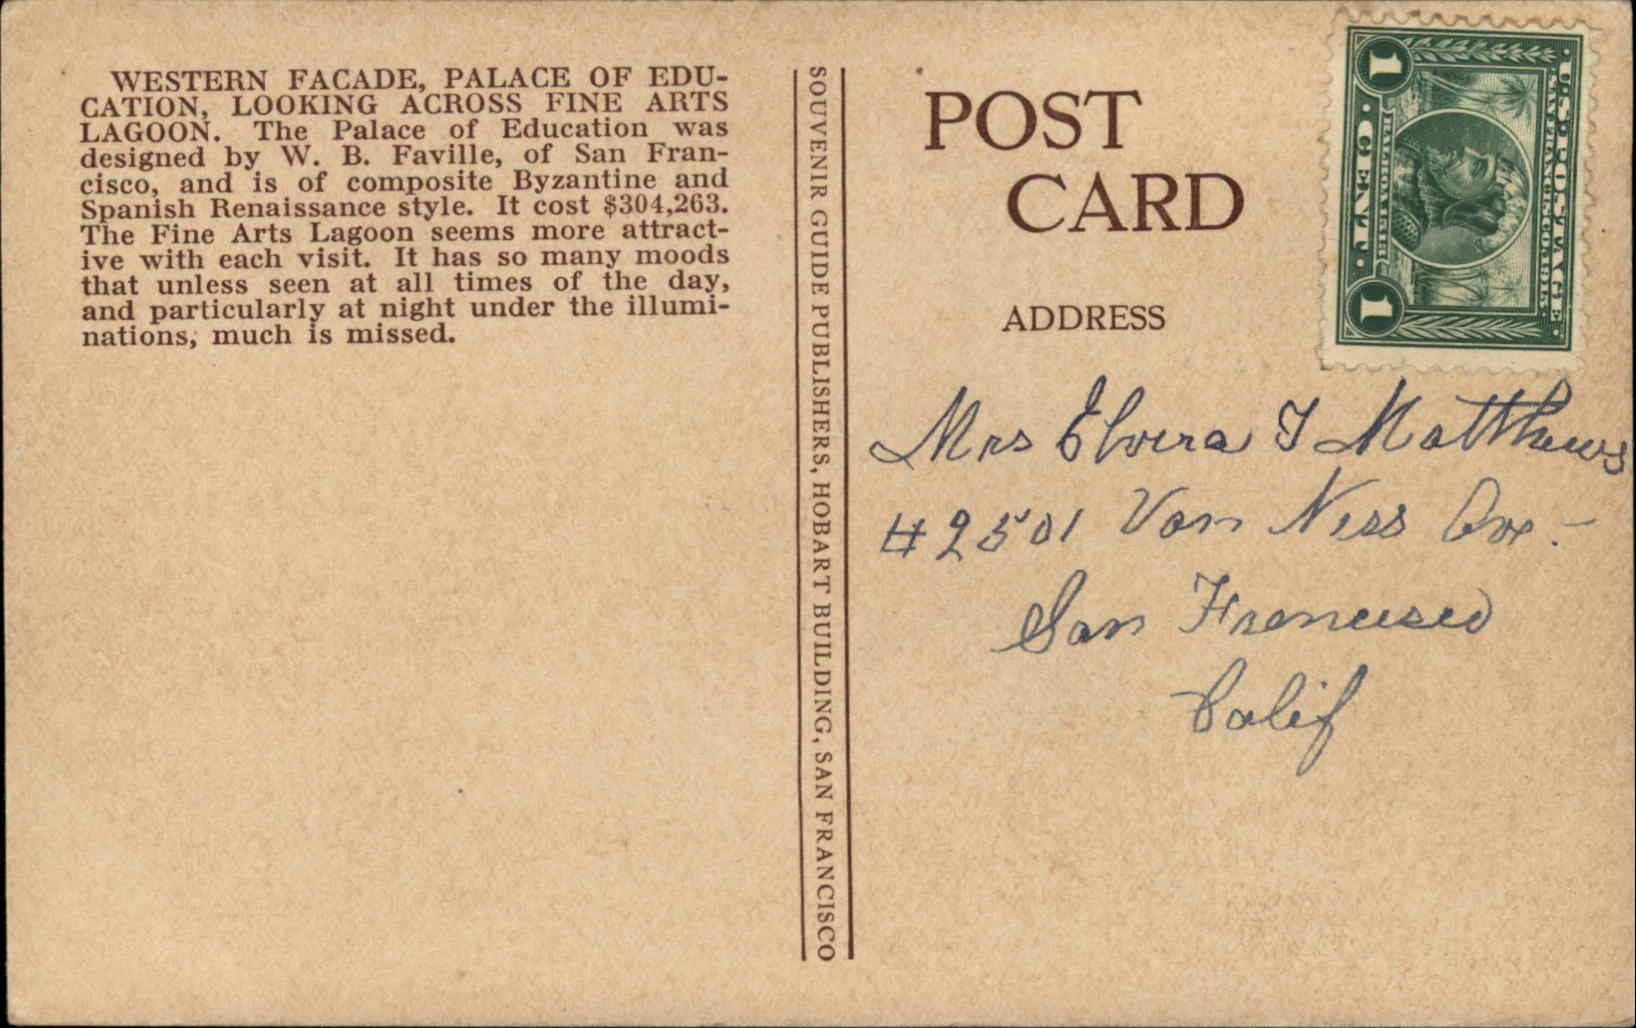 WESTERN FACADE, PALACE OF EDU-
CATION, LOOKING ACROSS FINE ARTS
LAGOON. The Palace of Education was
designed by W. B. Faville, of San Fran-
cisco, and is of composite Byzantine and
Spanish Renaissance style. It cost $304,263.
The Fine Arts Lagoon seems more attract-
ive with each visit. It has so many moods
that unless seen at all times of the day,
and particularly at night under the illumi-
nations, much is missed.
SOUVENIR GUIDE PUBLISHERS, HOBART BUILDING, SAN FRANCISCO
POST
CARD
ADDRESS
Mrs Elvira T Matthews
#2501 Van Ness Ave. -
San Francisco
Calif
U.S. POSTAGE
SAN FRANCISCO 1915
BALBOA 1513
1 CENT 1